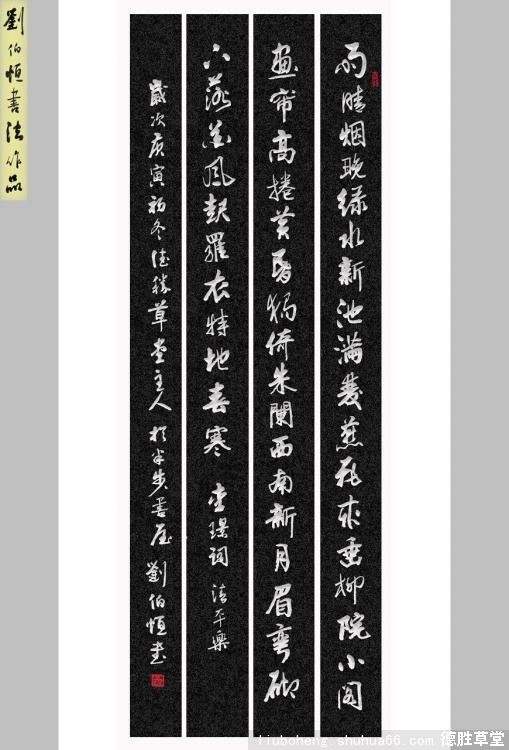 劉伯恒書法作品
雨晴烟晚绿水新池滿雙燕飛來垂柳院小阁
畫帘高捲黄昏獨倚朱闌西南新月眉弯砌
下落花風起羅衣特地春寒 李璟词 清平樂
歲次庚寅初冬德勝草堂主人於半步書屋 劉伯恒書
liuboheng.shuhua66.com 德胜草堂